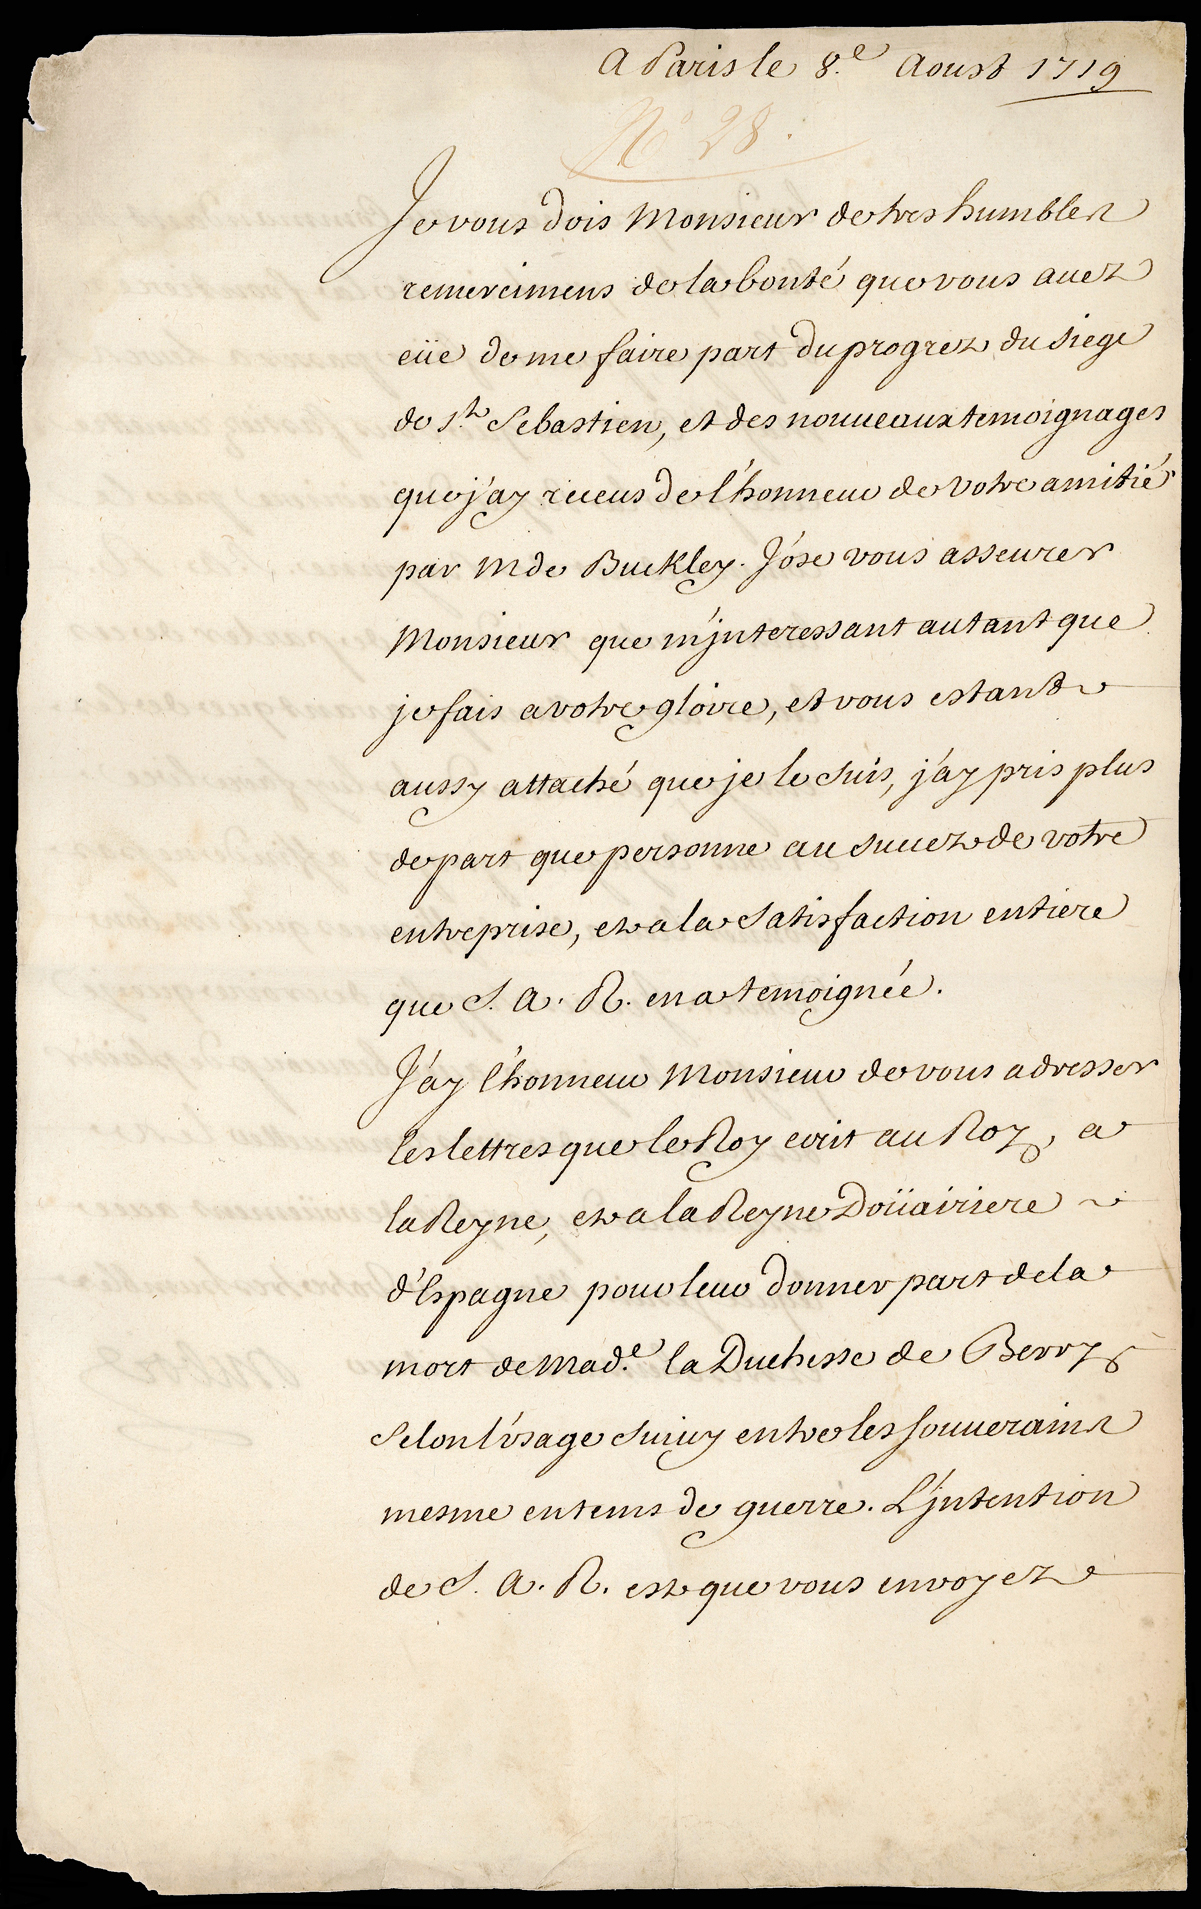 A Paris le 8.e Aoust 1719
No 28.
Je vous dois Monsieur de tres humbles
remercimens de la bonté que vous auez
eüe de me faire part du progrez du siege
de St. Sebastien, et des nouueaux temoignages
que j'ay receus de l'honneur de votre amitié
par Mde Buckley. J'ose vous asseurer
Monsieur que m'jnteressant autant que
je fais a votre gloire, et vous estant
aussy attaché que je le suis, j'ay pris plus
de part que personne au succez de votre
entreprise, et a la satisfaction entiere
que S. A. R. en a temoignée.
J'ay l'honneur Monsieur de vous adresser
les lettres que le Roy ecrit au Roy, a
la Reyne, et a la Reyne Doüairiere
d'Espagne pour leur donner part de la
mort de Mad.e la Duchesse de Berry
selon l'vsage suiuy entre les souuerains
mesme en tems de guerre. L'jntention
de S. A. R. est que vous envoyez